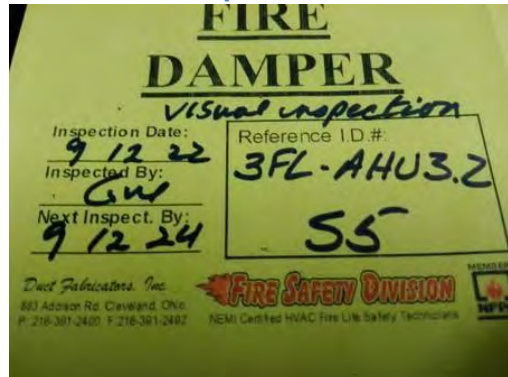 FIRE
DAMPER
visual inspection
Inspection Date:
9 12 22
Inspected By:
Next Inspect. By:
9 12 24
Reference I.D.#:
3FL-AHU3.2
S5
Duct Fabricators, Inc.
883 Addison Rd. Cleveland, Ohio
P: 216-391-2400 F: 216-391-2492
FIRE SAFETY DIVISION
NEMI Certified HVAC Fire Life Safety Technicians
MEMBER
NFPA